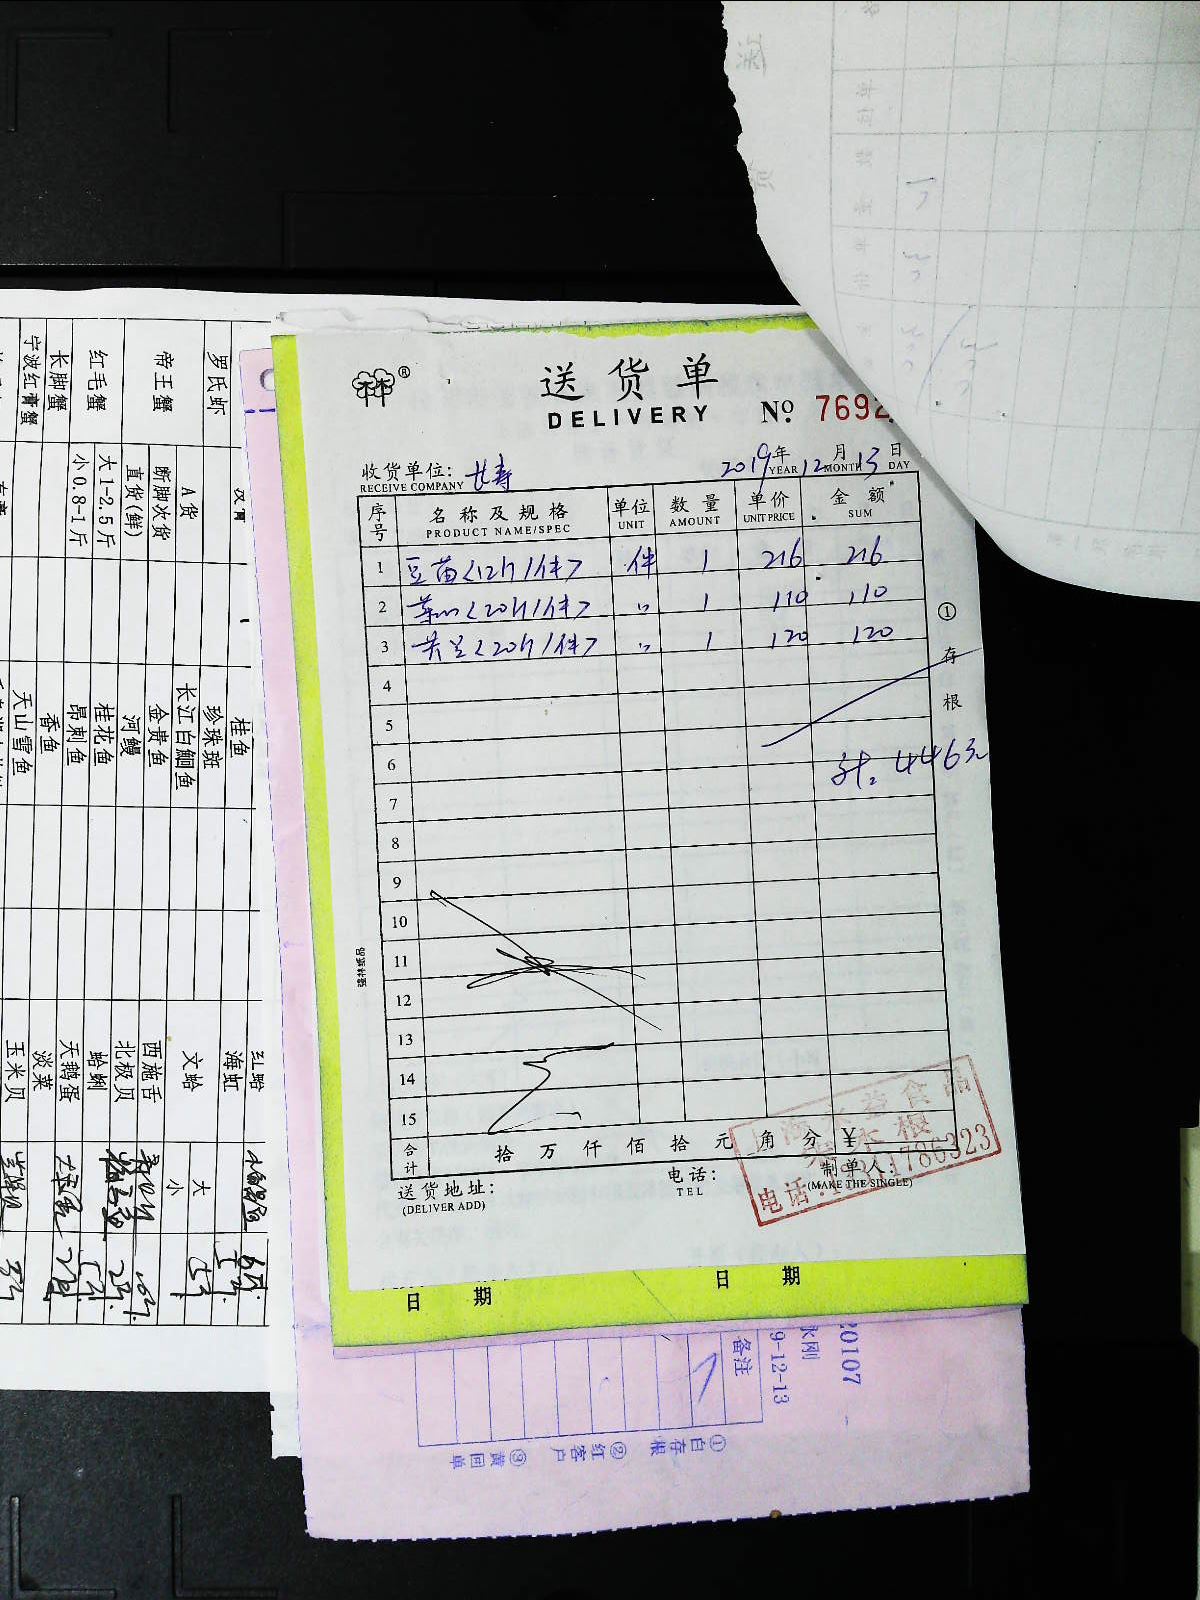 送货单
DELIVERY
№ 7692
收货单位: 长寿
RECEIVE COMPANY
2019年12月13日
YEAR MONTH DAY
序号 名称及规格 单位 数量 单价 金额
PRODUCT NAME/SPEC UNIT AMOUNT UNIT PRICE SUM
1 豆苗<12斤/件> 件 1 216 216
2 菜心<20斤/件> 〃 1 110 110
3 <20斤/件> 〃 1 120 120
4
5
6
计: 446元
7
8
9
10
11
12
13
14
15
合计 拾 万 仟 佰 拾 元 角 分 ¥
送货地址:
(DELIVER ADD)
电话:
TEL
制单人:
(MAKE THE SINGLE)
①存根
强林纸品
食品
电话: 1786323
日 期
日 期
20107
永刚
9-12-13
备注
①白存根 ②红客户 ③黄回单
罗氏虾
帝王蟹
红毛蟹
长脚蟹
宁波红膏蟹
A货
断脚次货
直货(鲜)
大1-2.5斤
小0.8-1斤
桂鱼
珍珠斑
长江白鮰鱼
金贵鱼
河鳗
桂花鱼
昂刺鱼
香鱼
天山雪鱼
红蛤
海虹
文蛤
西施舌
北极贝
蛤蜊
天鹅蛋
淡菜
玉米贝
大
小